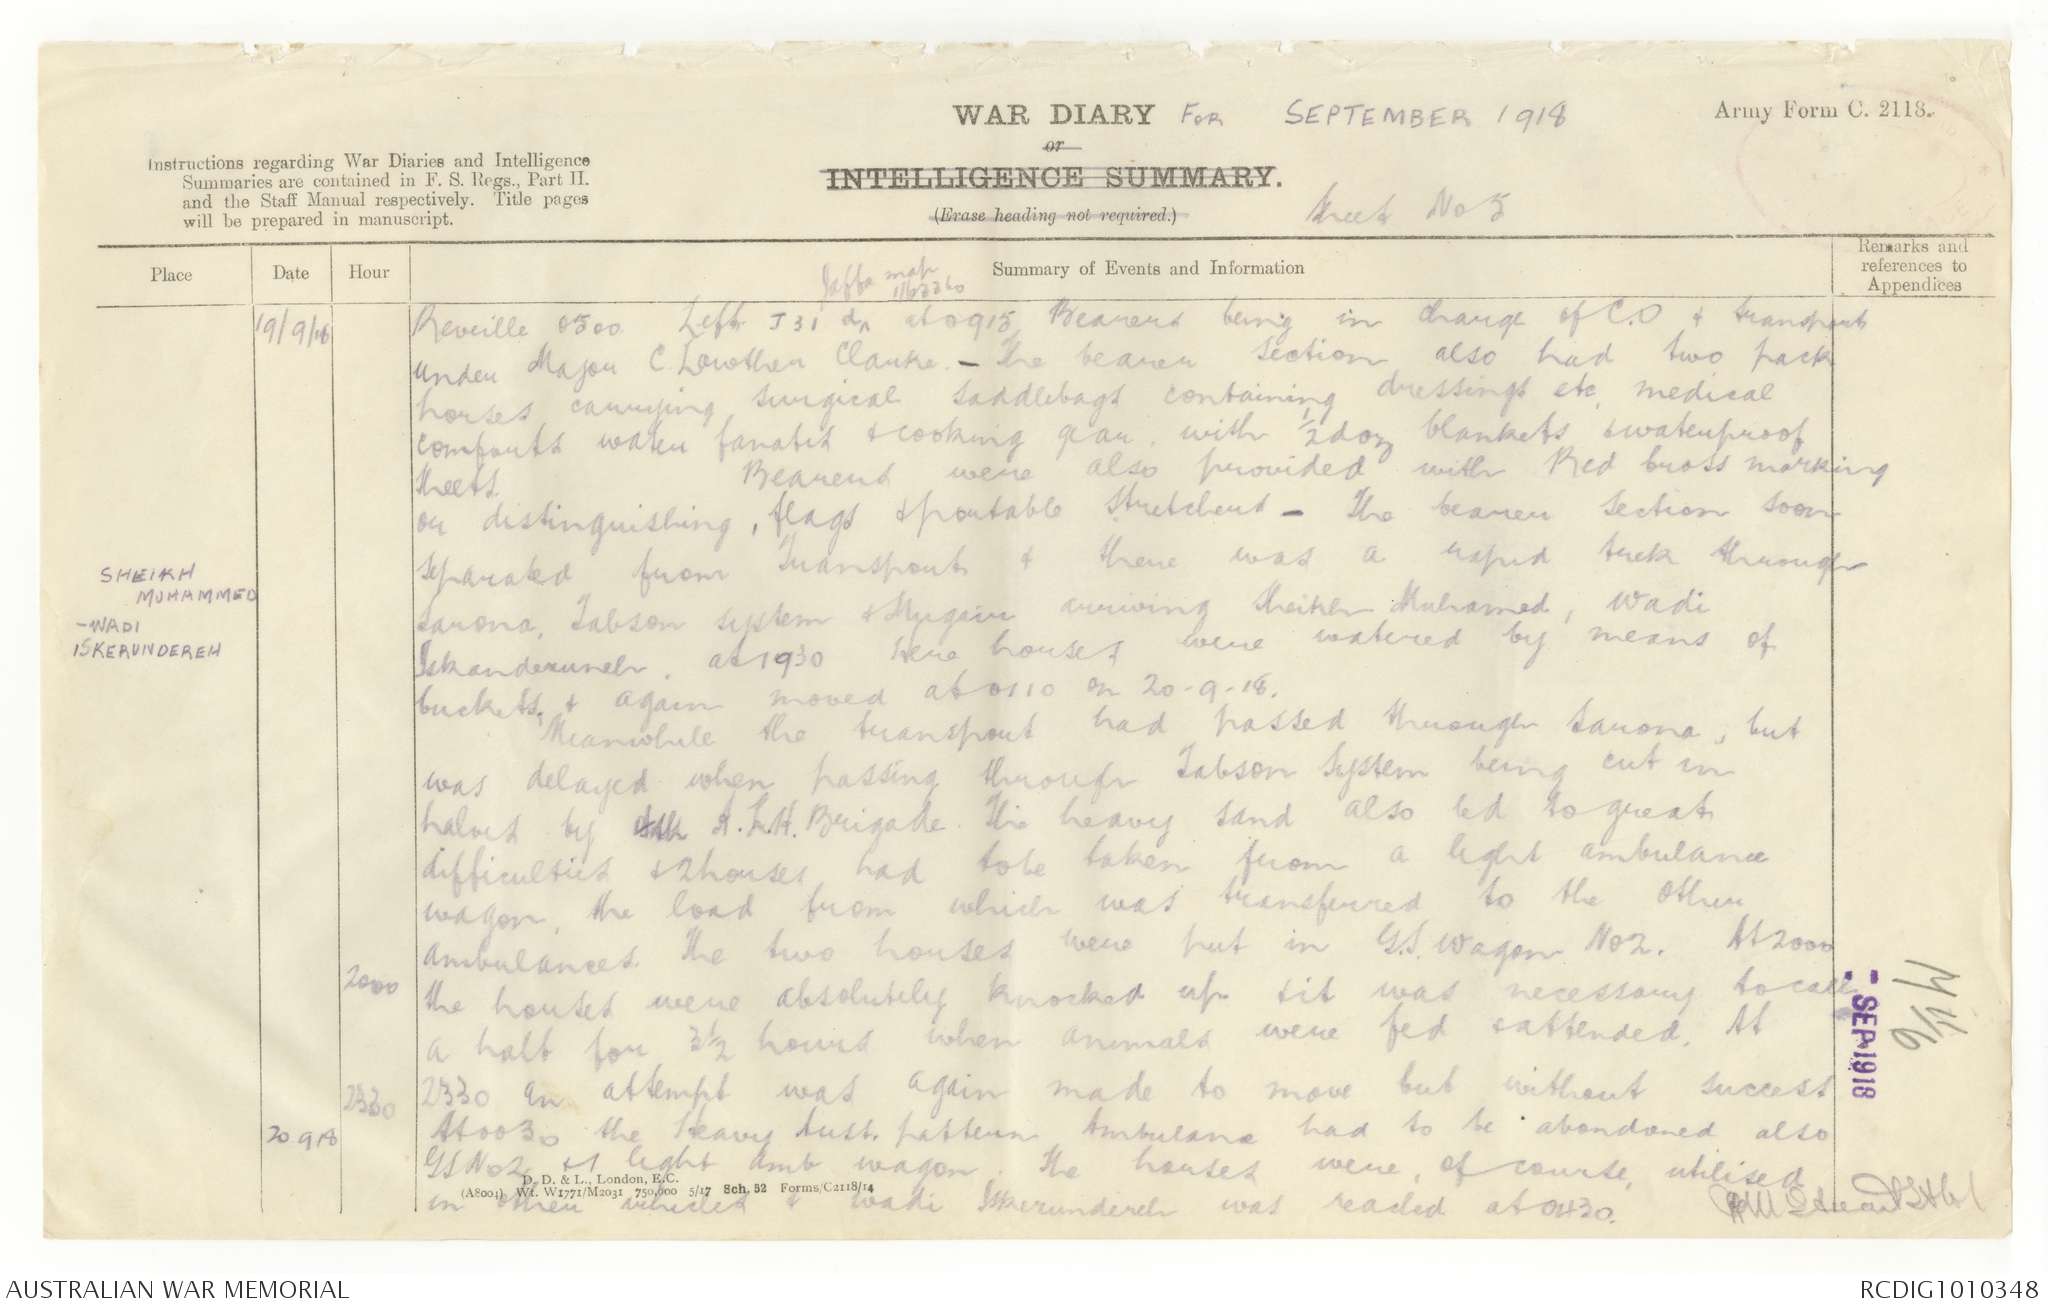 WAR DIARY FOR SEPTEMBER 1918
Army Form C. 2118.
or
INTELLIGENCE SUMMARY.
(Erase heading not required.)
Sheet No 5
Instructions regarding War Diaries and Intelligence
Summaries are contained in F. S. Regs., Part II.
and the Staff Manual respectively. Title pages
will be prepared in manuscript.
Place
Date
Hour
Summary of Events and Information
Remarks and
references to
Appendices
Jaffa map
19/9/18
Reveille 0500 Left J 31 d at 0915 Bearers being in charge of C.O & transport
under Major C. Lowther Clarke. - The bearer section also had two pack
horses carrying surgical saddlebags containing dressings etc, medical
comforts water fanatis & cooking gear. with 1/2 doz blankets & waterproof
sheets. Bearers were also provided with Red Cross marking
or distinguishing, flags & portable stretchers - The bearer section soon
separated from Transport & there was a rapid trek through
SHEIKH
MUHAMMED
-WADI
ISKERUNDEREH
Sarona, Tabson system & Mugair arriving Sheikh Muhamed, Wadi
Iskanderuneh, at 1930 Here horses were watered by means of
buckets, & again moved at 0110 on 20-9-18.
Meanwhile the transport had passed through Sarona, but
was delayed when passing through Tabson System being cut in
halves by A.L.H. Brigade. The heavy sand also led to great
difficulties & 2 horses had to be taken from a light ambulance
wagon, the load from which was transferred to the other
ambulances. The two horses were put in G.S. Wagon No 2. At 2000
2000
the horses were absolutely knocked up & it was necessary to call
a halt for 3 1/2 hours when animals were fed & attended. At
2330
2330 an attempt was again made to move but without success
20 9 18
At 0030 the heavy Aust. pattern Ambulance had to be abandoned also
GS No 2 & 1 light amb wagon. The horses were, of course, utilised
in other vehicles & Wadi Iskerundereh was reached at 0430.
D. D. & L., London, E.C.
(A8001) Wt. W1771/M2031 750,000 5/17 Sch. 52 Forms/C2118/14
- SEP 1918
AUSTRALIAN WAR MEMORIAL
RCDIG1010348